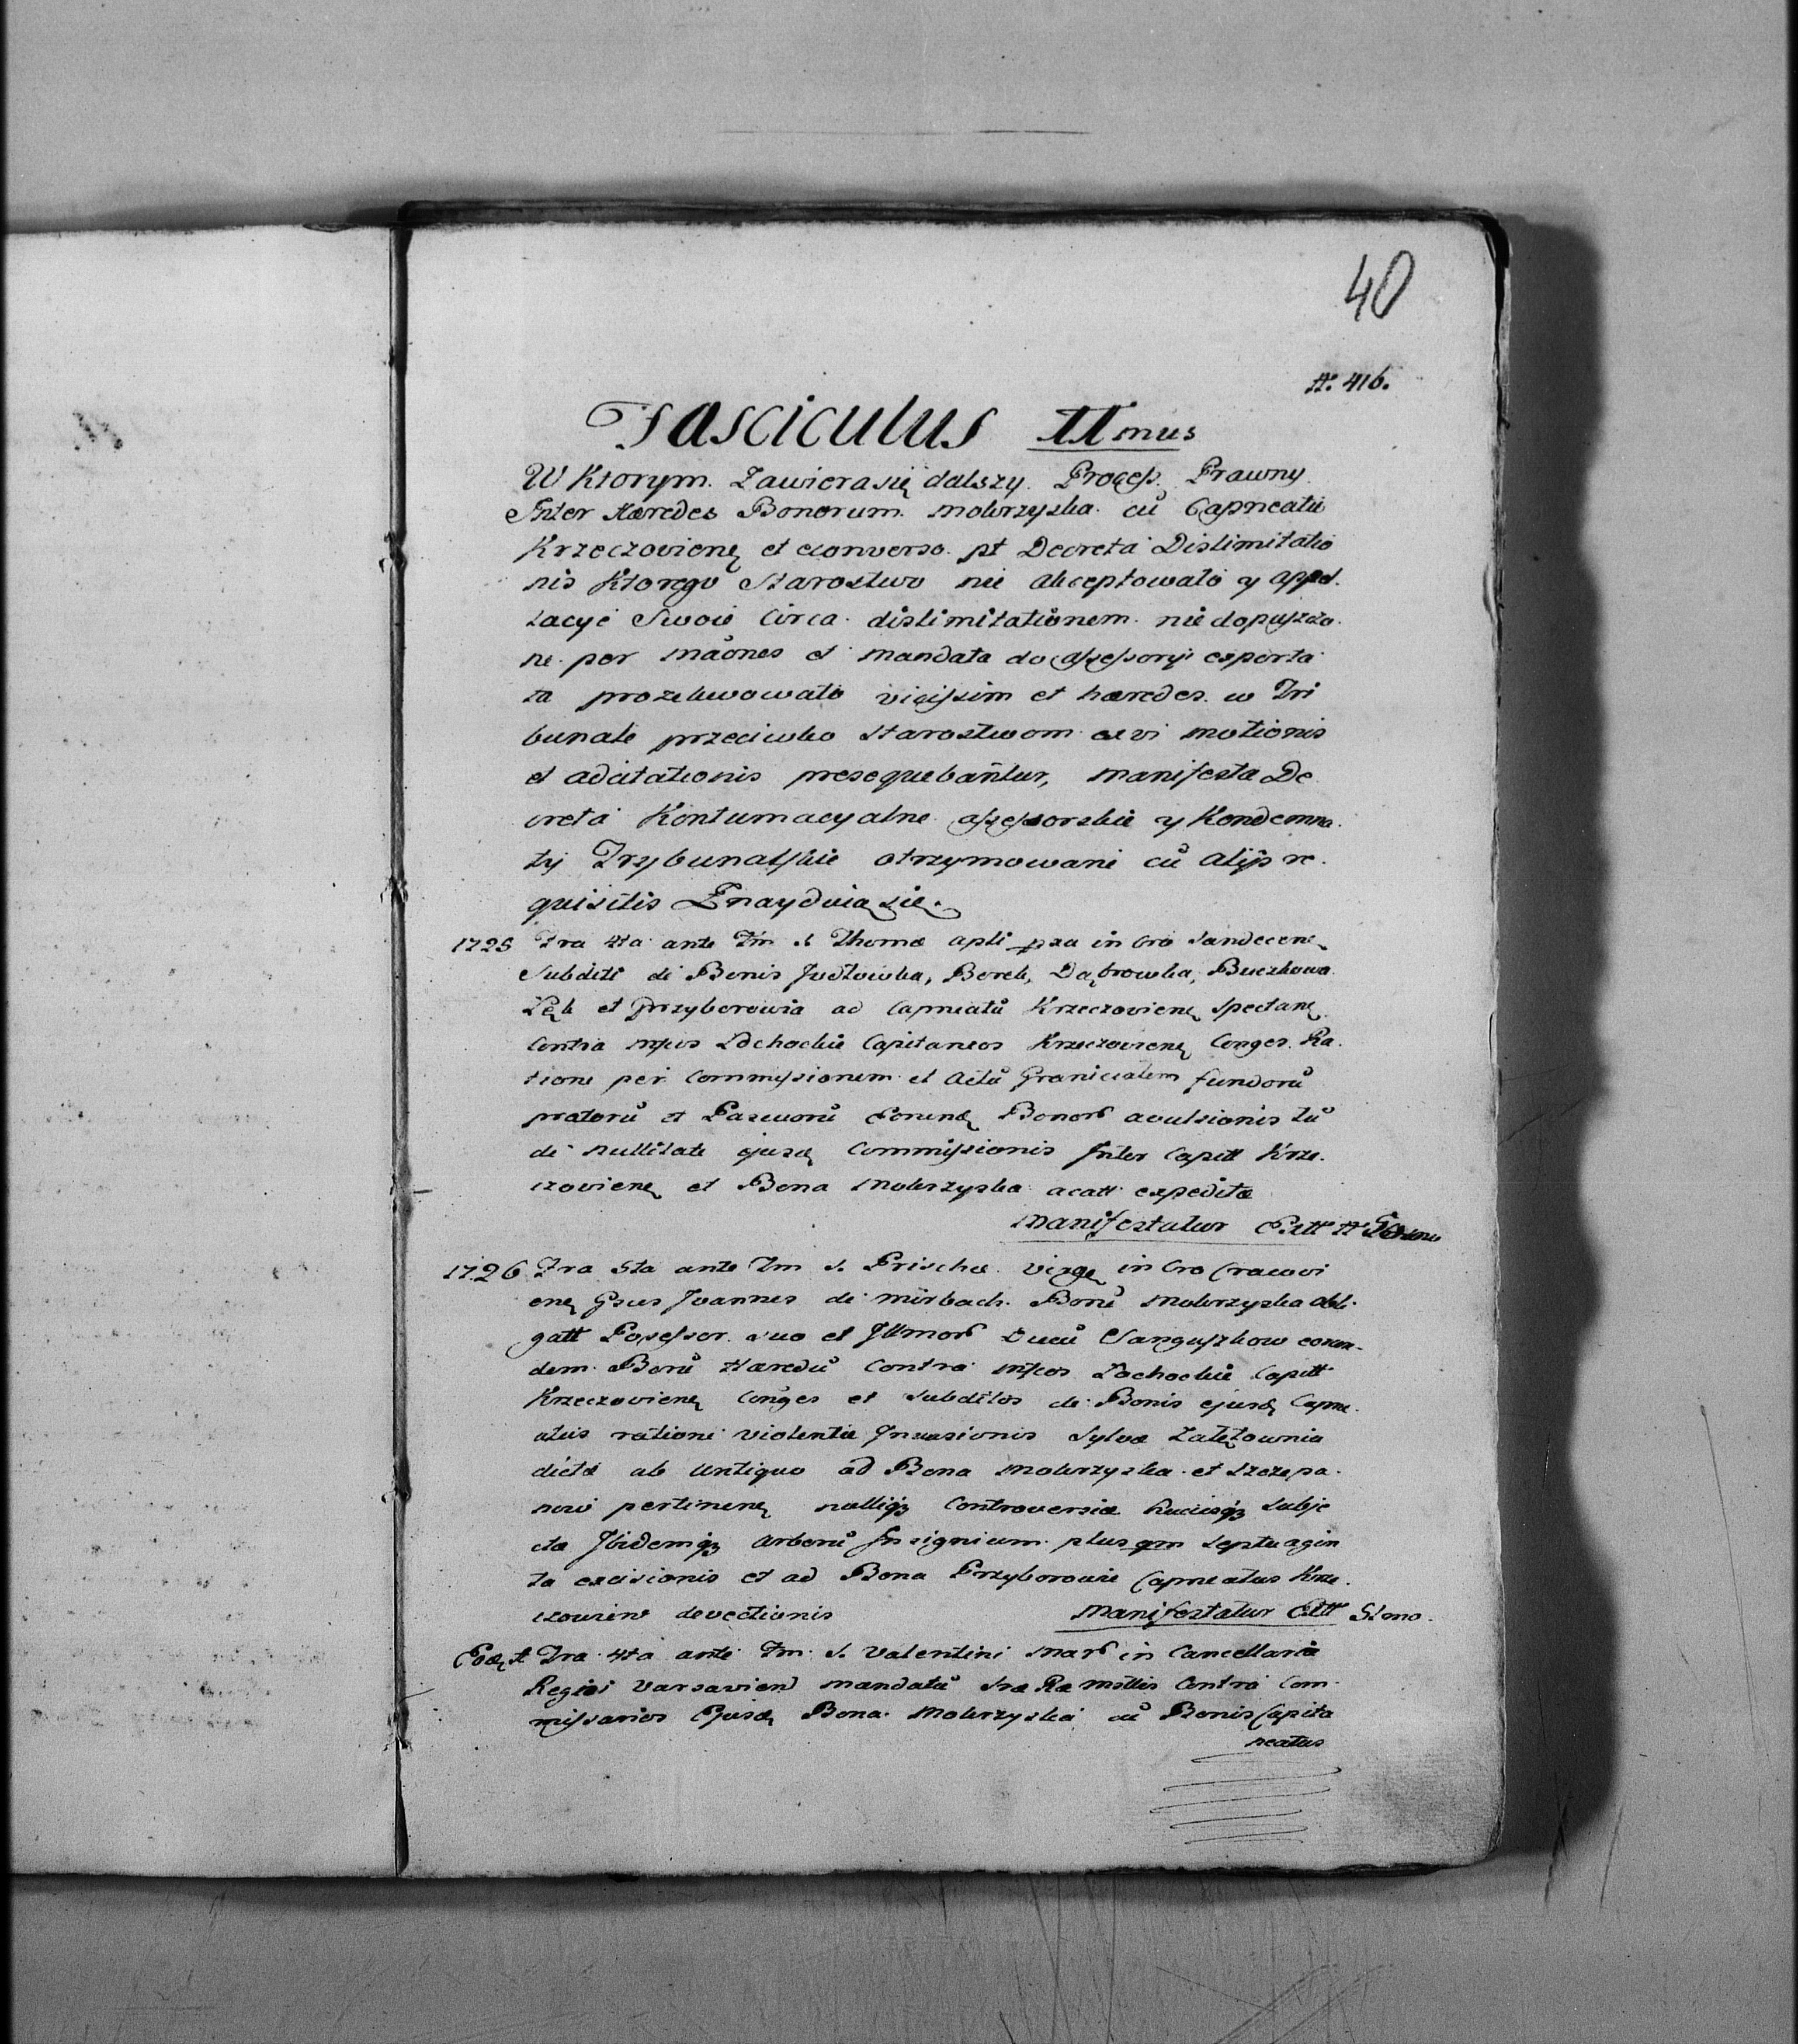 40
N. 416.
Fasciculus IImus
W Ktorym. Zawiera się dalszy. Process. Prawny
Inter Hæredes Bonorum. Mokrzyska. cũ Capneatũ
Krzeczovienę et econverso. pt Decreta Dislimitatio
nis Ktorego Starostwo nie akceptowało y appel.
lacye Swoie Circa. dislimitationem. nie dopuszczo.
ne. per mãones et mandata do assessoryi exporta
ta prozekwowało vicissim et hæredes. w Tri
bunale przeciwko Starostwom ex vi motionis
et adcitationis prosequebañtur, manifesta De
creta Kontumacyalne assessorskie y Kondemna.
ty Trybunalskie otrzymowane cũ alijs re.
quisitis Znayduią się.
1725 Fra 4ta ante Fm S Thomæ apli in Cro Sandecenę
Subditi de Bonis Jodłowka, Borek, Dąbrowka, Buczkow.
Łęk et Przyborowia ad Capneatũ Krzeczovienę Spectanę
Contra Łochockie Capitaneos Krzeczovienę Conges. Ra.
tione per Commissionem et Actũ Granicialem fundorũ
pratorũ et Pascuorũ Eorundę Bonor avulsionis tũ
de nullitate ejusdę Commissionis Inter Capitt Krze.
czovienę et Bona Mokrzyska acatt expeditæ
Manifestatur Extt
1726 Fra 5ta ante Fm S. Prischæ Virgę in Cro Cracovi
enę Gsus Joannes de Mirbach. Bonũ Mokrzyska obli.
gatt Possessor. suo et Illmor Ducũ Sanguszkow eorun.
dem. Bonũ Hæredũ Contra Łochockie Capitt
Krzeczovienę Conges et Subditos de Bonis ejusdę Capne.
atus ratione violentæ Invasionis Sylvæ Zatętownia
dictæ ab Antiquo ad Bona Mokrzyska. et Szczepa.
now pertinenę nulliqz Controversiæ hucusqz Subje
ctæ Ibidemqz Arborũ Insignium plus qm Septuagin
ta excisionis et ad Bona Przyborowie Capneatus Krze.
czovien devectionis Manifestatur Extt S1mo.
Eodę A Fra 4ta ante Fm S. Valentini Mar in Cancellaria
Regia Varsavien mandatũ Sræ Ræ Mttis Contra Com.
missarios Ejusdę Bona. Mokrzyska cũ Bonis Capita
neatus